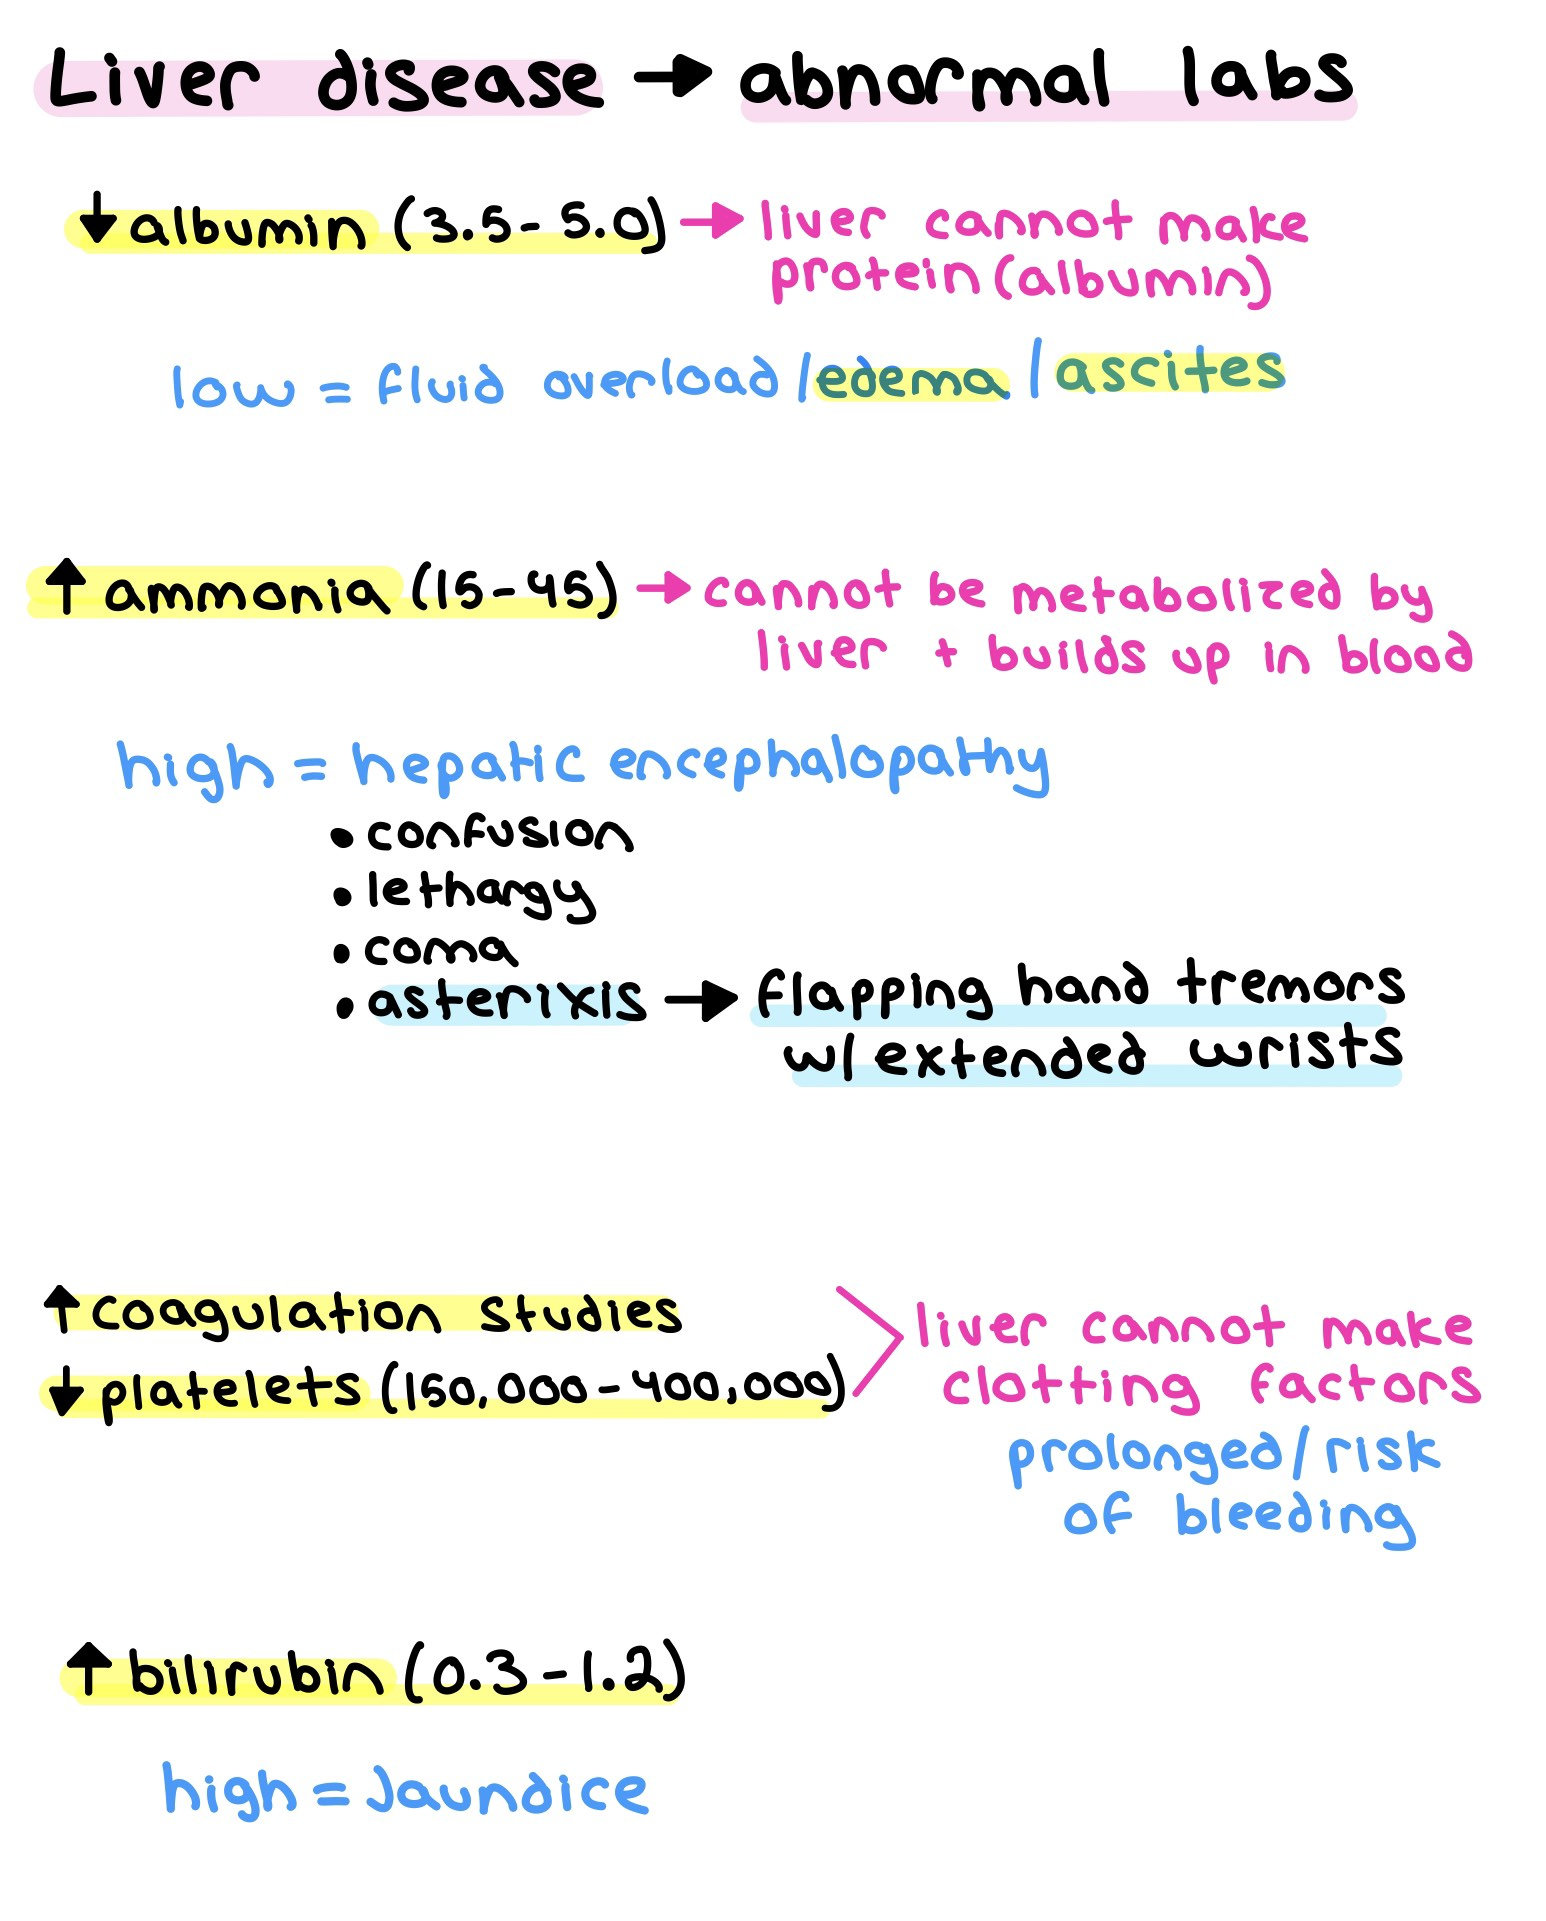 Liver disease → abnormal labs
↓ albumin (3.5-5.0) → liver cannot make
protein (albumin)
low = fluid overload / edema / ascites
↑ ammonia (15-45) → cannot be metabolized by
liver + builds up in blood
high = hepatic encephalopathy
• confusion
• lethargy
• coma
• asterixis → flapping hand tremors
w/ extended wrists
↑ coagulation studies
↓ platelets (150,000-400,000)
liver cannot make
clotting factors
prolonged/risk
of bleeding
↑ bilirubin (0.3-1.2)
high = Jaundice